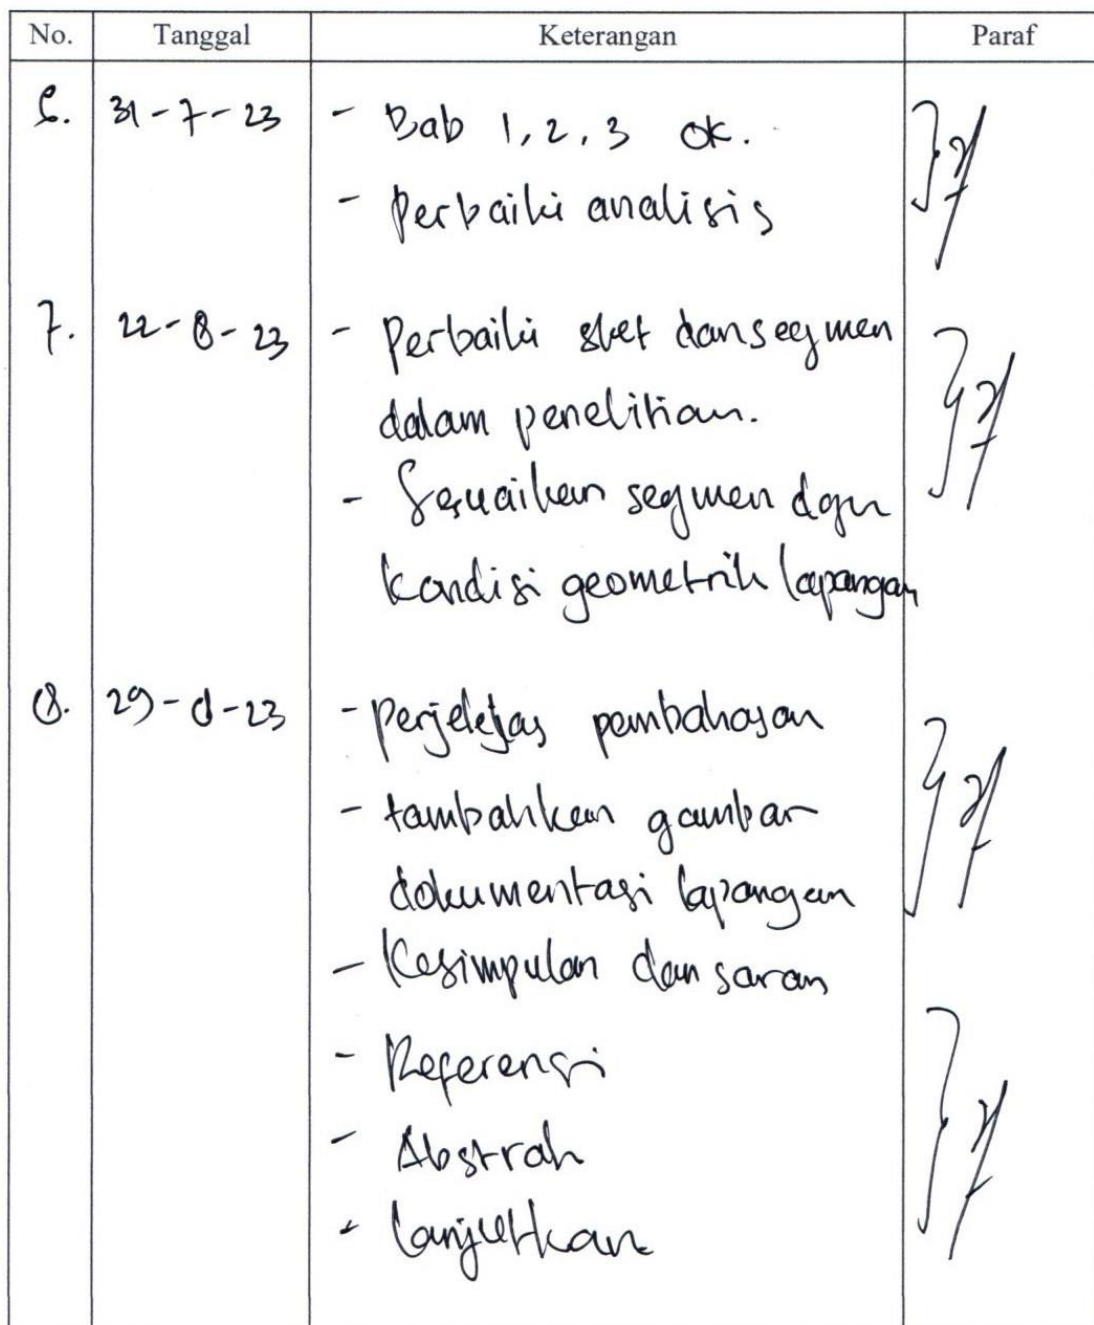 No. Tanggal Keterangan Paraf
6. 31-7-23 - Bab 1, 2, 3 ok.
- Perbaiki analisis
7. 22-8-23 - Perbaiki sket dan segmen
dalam penelitian.
- Sesuaikan segmen dgn
kondisi geometrik lapangan
8. 29-8-23 - perjelas pembahasan
- tambahkan gambar
dokumentasi lapangan
- Kesimpulan dan saran
- Referensi
- Abstrak
- Lanjutkan